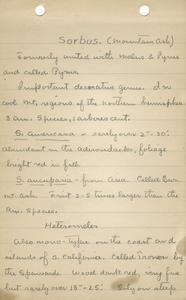 Sorbus. (Mountain Ash)
Formerly united with Malus & Pyrus
and called Pyrus
Important decorative genus. In
cool Mt. regions of the northern hemisphere
3 Am. Species, 1 arborescent.
S. americana - rarely over 20-30'.
abundant in the Adirondacks, foliage
bright red in fall.
S. aucuparia - from Asia. Called
Mt. ash. Fruit 2-3 times larger than the
Am. Species.
Heteromeles
Also mono-typic on the coast and
islands of S. California. Called
by the Spaniards. Wood dark red, very fine
but rarely over 18"-25'. Only on steep